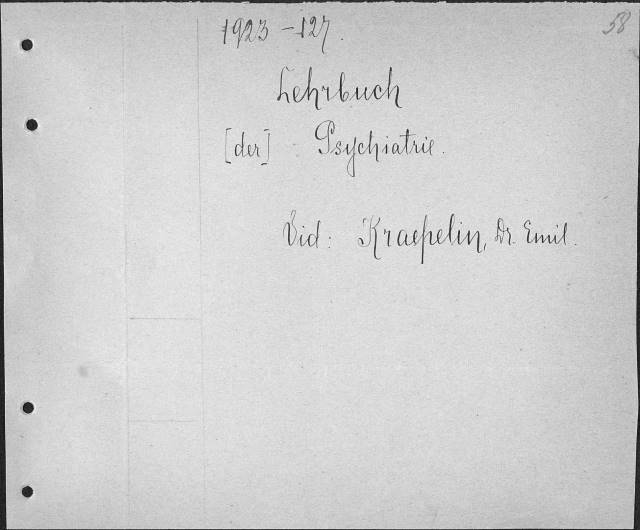 1923-127.
58
Lehrbuch
[der] Psychiatrie.
Vid: Kraepelin, Dr. Emil.